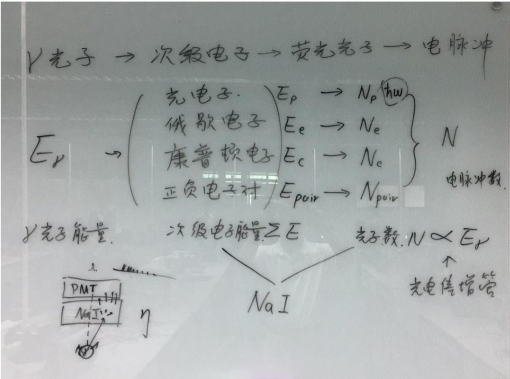 γ光子 → 次级电子 → 荧光光子 → 电脉冲
光电子. Ep → Np ħω
俄歇电子 Ee → Ne
Eγ → 康普顿电子 Ec → Nc N
正负电子对 Epair → Npair 电脉冲数.
γ光子能量. 次级电子能量ΣE 光子数. N ∝ Eγ
↑
光电倍增管
NaI
PMT
NaI η
γ